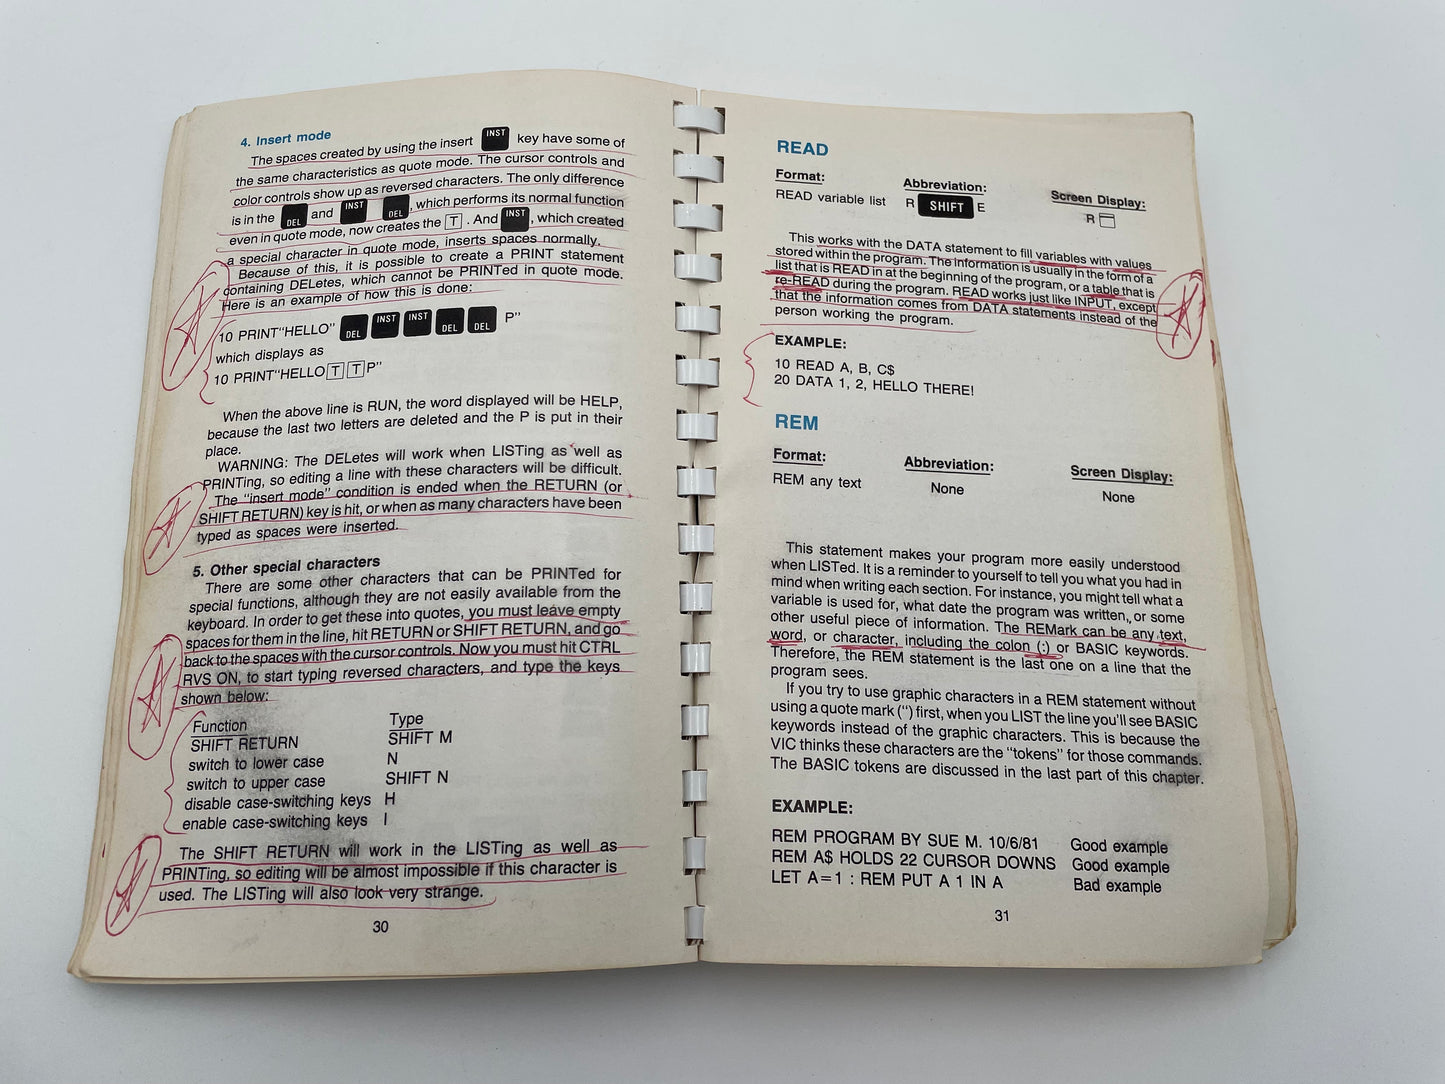 4. Insert mode
The spaces created by using the insert INST key have some of
the same characteristics as quote mode. The cursor controls and
color controls show up as reversed characters. The only difference
is in the DEL and INST DEL, which performs its normal function
even in quote mode, now creates the T . And INST, which created
a special character in quote mode, inserts spaces normally.
Because of this, it is possible to create a PRINT statement
containing DELetes, which cannot be PRINTed in quote mode.
Here is an example of how this is done:
10 PRINT"HELLO" DEL INST INST DEL DEL P"
which displays as
10 PRINT"HELLO T T P"
When the above line is RUN, the word displayed will be HELP,
because the last two letters are deleted and the P is put in their
place.
WARNING: The DELetes will work when LISTing as well as
PRINTing, so editing a line with these characters will be difficult.
The "insert mode" condition is ended when the RETURN (or
SHIFT RETURN) key is hit, or when as many characters have been
typed as spaces were inserted.
5. Other special characters
There are some other characters that can be PRINTed for
special functions, although they are not easily available from the
keyboard. In order to get these into quotes, you must leave empty
spaces for them in the line, hit RETURN or SHIFT RETURN, and go
back to the spaces with the cursor controls. Now you must hit CTRL
RVS ON, to start typing reversed characters, and type the keys
shown below:
Function Type
SHIFT RETURN SHIFT M
switch to lower case N
switch to upper case SHIFT N
disable case-switching keys H
enable case-switching keys I
The SHIFT RETURN will work in the LISTing as well as
PRINTing, so editing will be almost impossible if this character is
used. The LISTing will also look very strange.
30
READ
Format: Abbreviation: Screen Display:
READ variable list R SHIFT E R
This works with the DATA statement to fill variables with values
stored within the program. The information is usually in the form of a
list that is READ in at the beginning of the program, or a table that is
re-READ during the program. READ works just like INPUT, except
that the information comes from DATA statements instead of the
person working the program.
EXAMPLE:
10 READ A, B, C$
20 DATA 1, 2, HELLO THERE!
REM
Format: Abbreviation: Screen Display:
REM any text None None
This statement makes your program more easily understood
when LISTed. It is a reminder to yourself to tell you what you had in
mind when writing each section. For instance, you might tell what a
variable is used for, what date the program was written, or some
other useful piece of information. The REMark can be any text,
word, or character, including the colon (:) or BASIC keywords.
Therefore, the REM statement is the last one on a line that the
program sees.
If you try to use graphic characters in a REM statement without
using a quote mark (") first, when you LIST the line you'll see BASIC
keywords instead of the graphic characters. This is because the
VIC thinks these characters are the "tokens" for those commands.
The BASIC tokens are discussed in the last part of this chapter.
EXAMPLE:
REM PROGRAM BY SUE M. 10/6/81 Good example
REM A$ HOLDS 22 CURSOR DOWNS Good example
LET A=1 : REM PUT A 1 IN A Bad example
31